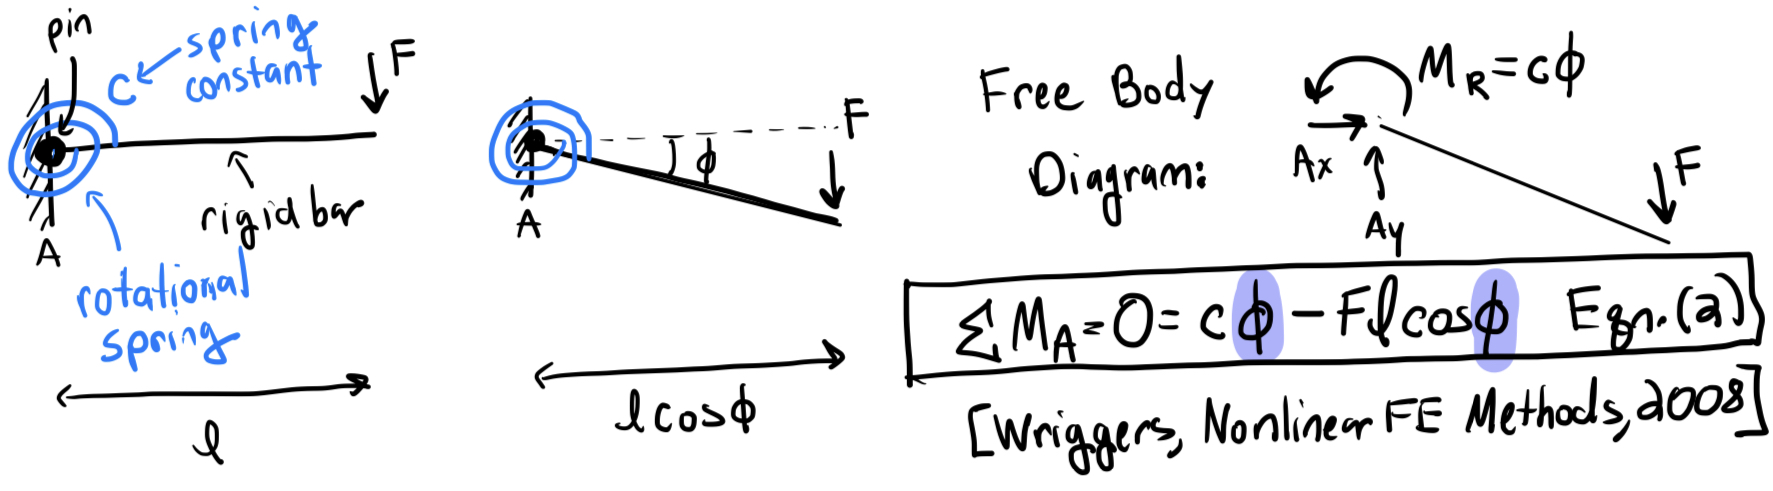 pin
C
spring
constant
F
A
rigid bar
rotational
spring
l
F
ϕ
A
l cosϕ
Free Body
Diagram:
M_R = cϕ
Ax
Ay
F
ΣM_A = 0 = cϕ − Fl cosϕ Eqn. (2)
[Wriggers, Nonlinear FE Methods, 2008]